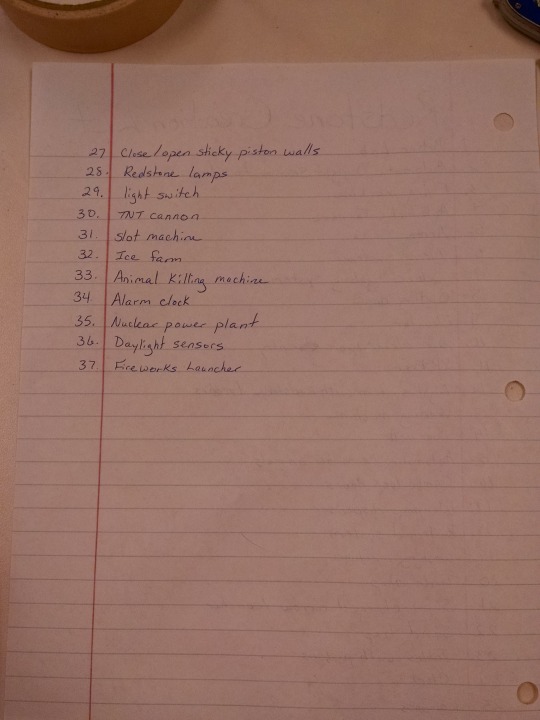 27 Close/open sticky piston walls
28. Redstone lamps
29. light switch
30. TNT cannon
31. Slot machine
32. Ice farm
33. Animal Killing machine
34. Alarm clock
35. Nuclear power plant
36. Daylight sensors
37. Fireworks Launcher